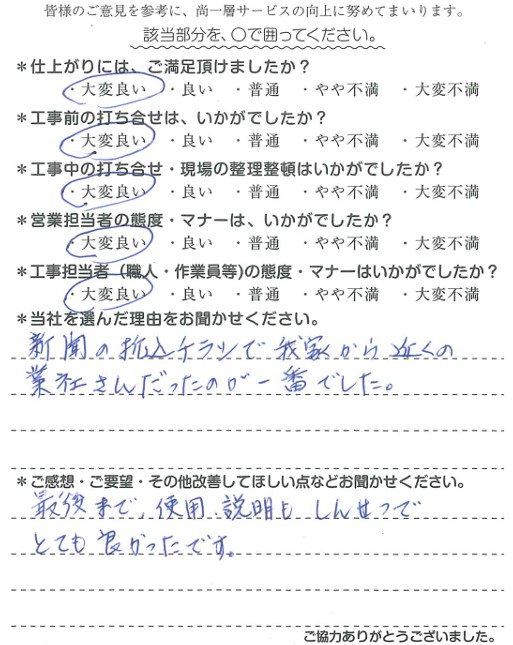 皆様のご意見を参考に、尚一層サービスの向上に努めてまいります。
該当部分を、〇で囲ってください。
＊仕上がりには、ご満足頂けましたか？
・大変良い ・良い ・普通 ・やや不満 ・大変不満
＊工事前の打ち合せは、いかがでしたか？
・大変良い ・良い ・普通 ・やや不満 ・大変不満
＊工事中の打ち合せ・現場の整理整頓はいかがでしたか？
・大変良い ・良い ・普通 ・やや不満 ・大変不満
＊営業担当者の態度・マナーは、いかがでしたか？
・大変良い ・良い ・普通 ・やや不満 ・大変不満
＊工事担当者（職人・作業員等)の態度・マナーはいかがでしたか？
・大変良い ・良い ・普通 ・やや不満 ・大変不満
＊当社を選んだ理由をお聞かせください。
新聞の折込チラシで我家から近くの
業社さんだったのが一番でした。
＊ご感想・ご要望・その他改善してほしい点などお聞かせください。
最後まで、使用、説明も しんせつで
とても良かったです。
ご協力ありがとうございました。